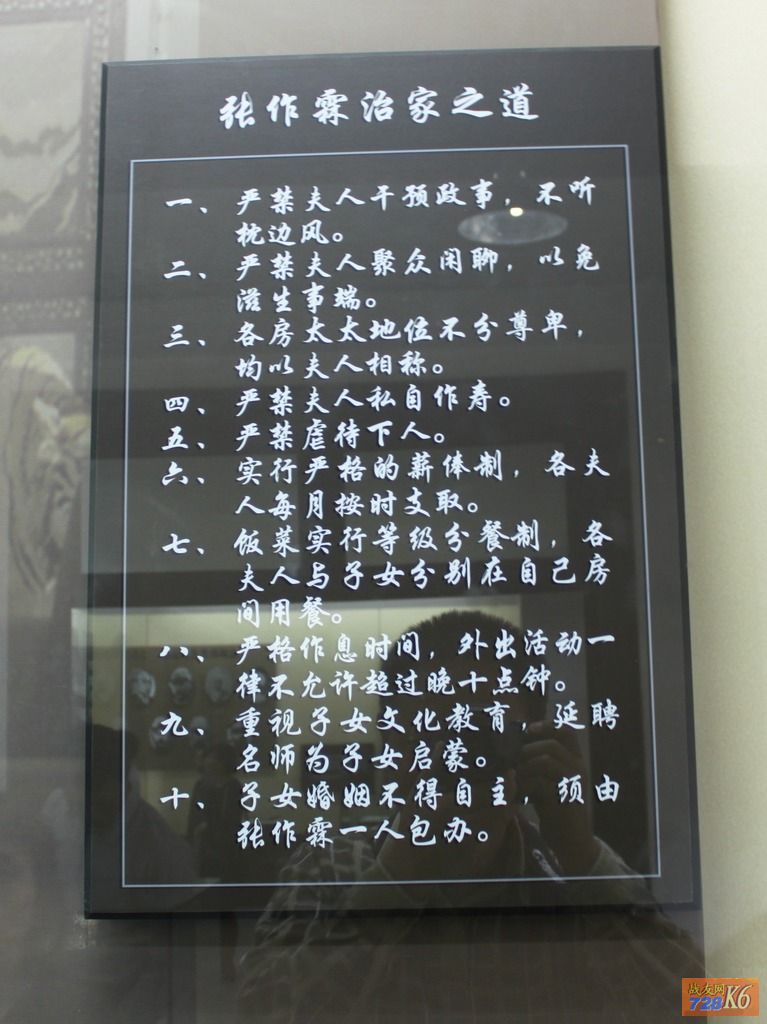 张作霖治家之道
一、严禁夫人干预政事，不听
枕边风。
二、严禁夫人聚众闲聊，以免
滋生事端。
三、各房太太地位不分尊卑，
均以夫人相称。
四、严禁夫人私自作寿。
五、严禁虐待下人。
六、实行严格的薪俸制，各夫
人每月按时支取。
七、饭菜实行等级分餐制，各
夫人与子女分别在自己房
间用餐。
八、严格作息时间，外出活动一
律不允许超过晚十点钟。
九、重视子女文化教育，延聘
名师为子女启蒙。
十、子女婚姻不得自主，须由
张作霖一人包办。
战友网
728K6